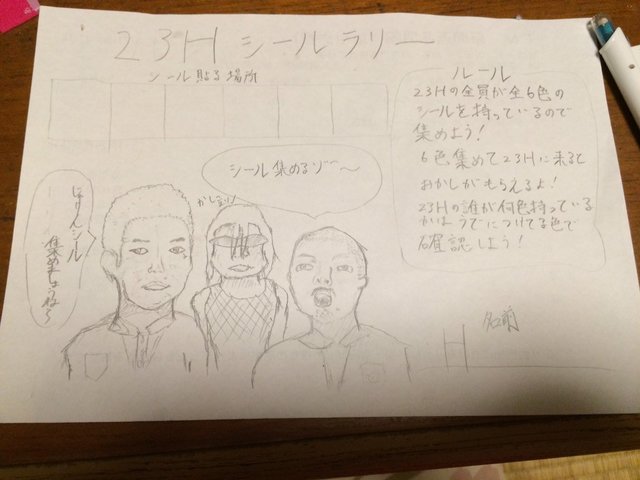 23Hシールラリー
シール貼る場所
ルール
23Hの全員が全6色の
シールを持っているので
集めよう!
6色集めて23Hに来ると
おかしがもらえるよ!
23Hの誰が何色持っている
かはうでにつけてる色で
確認しよう!
シール集めるゾ〜〜
かしまり!
シール
集めましょうね〜
名前
H